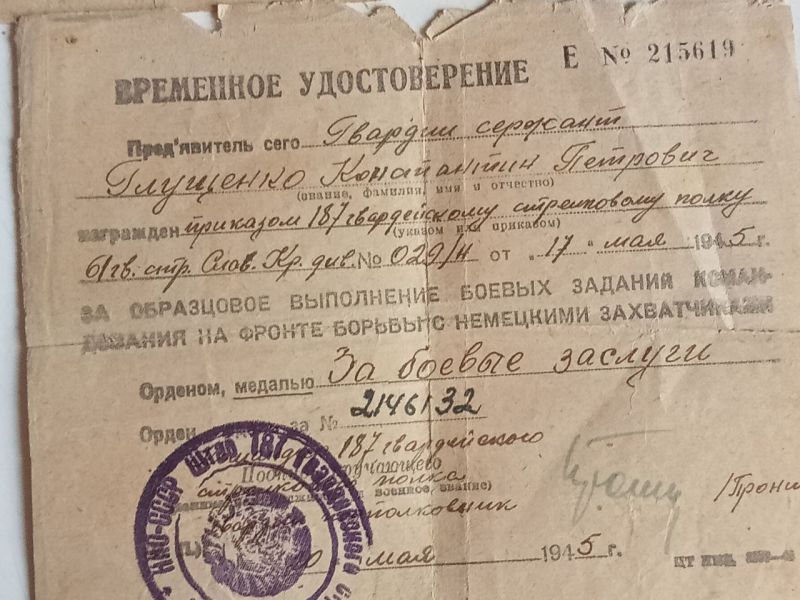 Е № 215619
ВРЕМЕННОЕ УДОСТОВЕРЕНИЕ
Пред'явитель сего Гвардии сержант
Глущенко Константин Петрович
(звание, фамилия, имя и отчество)
награжден приказом 187 гвардейскому стрелковому полку
(указом или приказом)
61 гв. стр. Слав. Кр. див. № 029/н от „17" мая 1945 г.
ЗА ОБРАЗЦОВОЕ ВЫПОЛНЕНИЕ БОЕВЫХ ЗАДАНИЙ КОМАН-
ДОВАНИЯ НА ФРОНТЕ БОРЬБЫ С НЕМЕЦКИМИ ЗАХВАТЧИКАМИ
Орденом, медалью За боевые заслуги
Орден за № 2146132
187 гвардейского
полка
военное, звание)
мая 1945 г.
НКО-СССР Штаб 187 Гвардейского